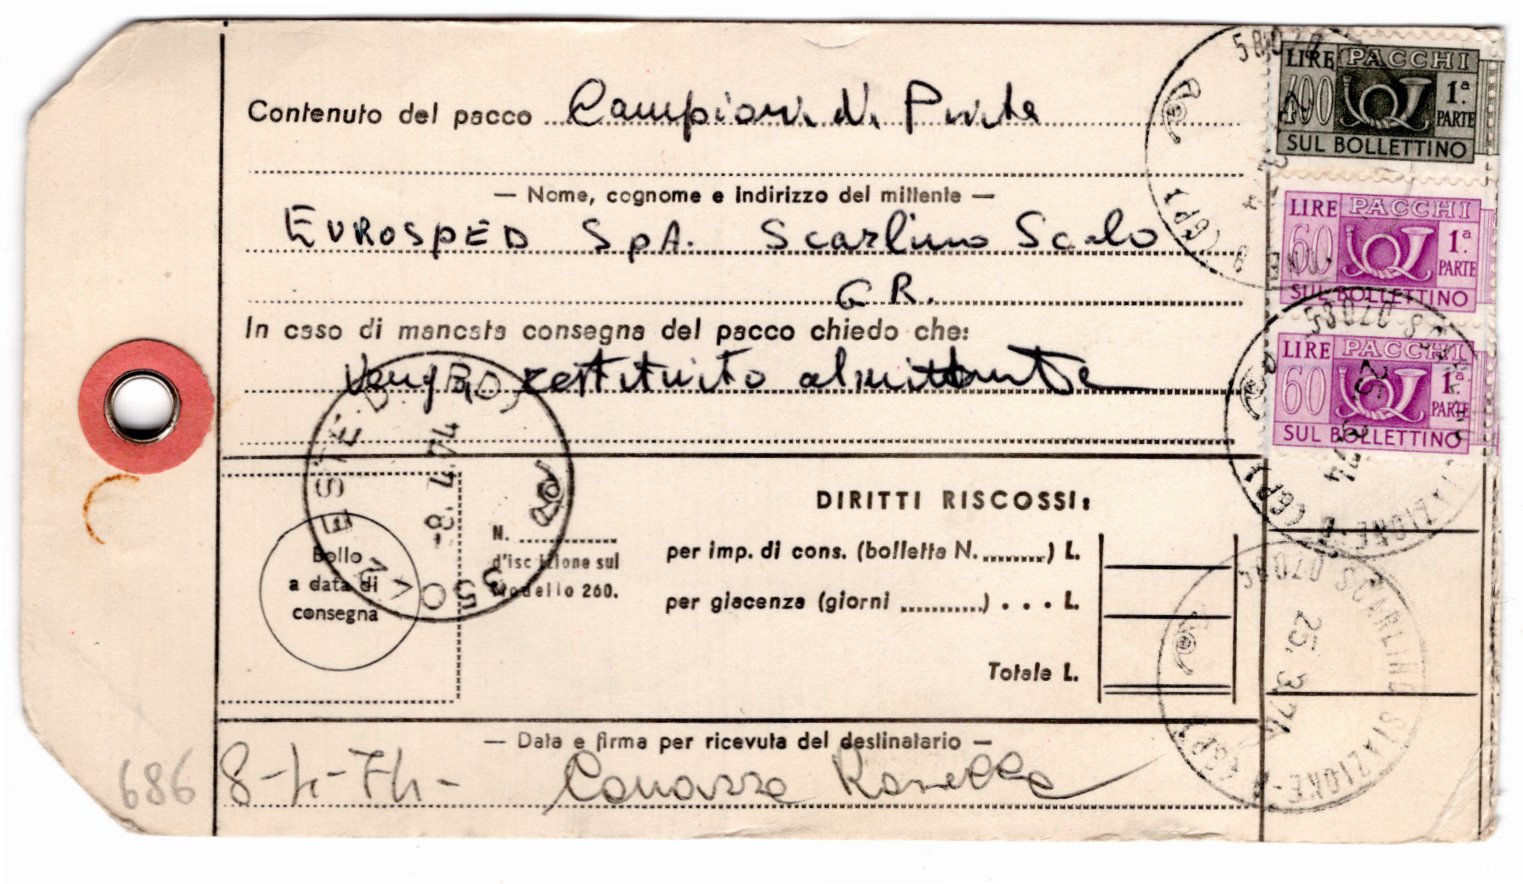 Contenuto del pacco Campioni di Pirite
— Nome, cognome e indirizzo del mittente —
EUROSPED SpA. Scarlino Scalo
GR.
In caso di mancata consegna del pacco chiedo che:
Venga restituito al mittente
DIRITTI RISCOSSI:
Bollo
a data di
consegna
N.
d'iscrizione sul
Modello 260.
per imp. di cons. (bolletta N. ) L.
per giacenza (giorni ) . . . L.
Totale L.
— Data e firma per ricevuta del destinatario —
686 8-4-74-
LIRE PACCHI
400 1ª PARTE
SUL BOLLETTINO
LIRE PACCHI
60 1ª PARTE
SUL BOLLETTINO
LIRE PACCHI
60 1ª PARTE
SUL BOLLETTINO
-8.4.74
58020 SCARLINO STAZIONE-A (GR)
25.3.74